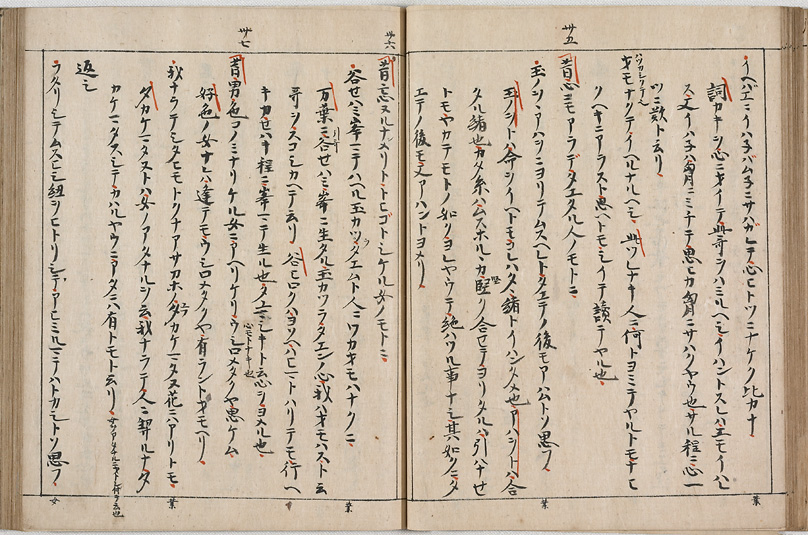 卅五
イヘバエニイハ子バム子ニサハガレテ心ヒトツニナケク比カナ 葉
詞カキシ心ニオイテ此哥ヲハミルヘシイハントスレハエモイハレ
ス又イハ子ハ胸ニミチテ思ヒカ胸ニサハクヤウ也サル程ニ心一
ツニ歎ト云リ
オモナクテイヘルナルヘシ 此ツレナキ人ニ何トヨミテヤルトモナヒ
クヘキニアラスト思ヘトモシイテ讀テヤル也
昔心ニモアラデタエタル人ノモトニ
玉ノヲヽアハヲニヨリテムスヘレハタエテノ後モアハムトソ思フ 葉
玉ノヲトハ命ヲイヘトモコレハタヽ緒トイハン為也アハヲトハ合
タル緒也カタ糸ハムスホルヽカ堅ク合セテヨリタルハ引ハナセ
トモヤカテモトノ如クヨレヤウテ絶ハツル事ナシ其如クニタ
エテノ後モ又アハントヨメリ
卅六
昔忘ヌルナメリトトヒゴトシケル女ノモトニ
谷セハミ峯マテハヘル玉カツラタエムト人ニワカオモハナクニ 葉
万葉ニ谷セハミ峯ニ生タル玉カツラタエンノ心我ハオモハスト云
哥ヲスコシカヘテ云リ 谷ヒロクハヨソヘハヒヒトハリテモ行ヘ
キカセハキ程ニ峯マテ生ル也タエマシキト云心ヲヨメル也
卅七
昔男色コノミナリケル女ニアヘリケリウシロメタクヤ思ケム
心モトナキ也
好色ノ女ナレハ逢テモウシロメタクヤ有ラントオモヘリ
我ナラテシタヒモトクナアサカホノ夕カケマタヌ花ニハアリトモ 葉
夕カケマタヌトハ女ノアタナルヲ云我ナラテ人ニ契ルナタ
カケマタスシテカハルヤウニアタニハ有トモト云リ
返シ
フタリシテムスヒシ紐ヲヒトリシテアヒミルマテハトカシトソ思フ 女